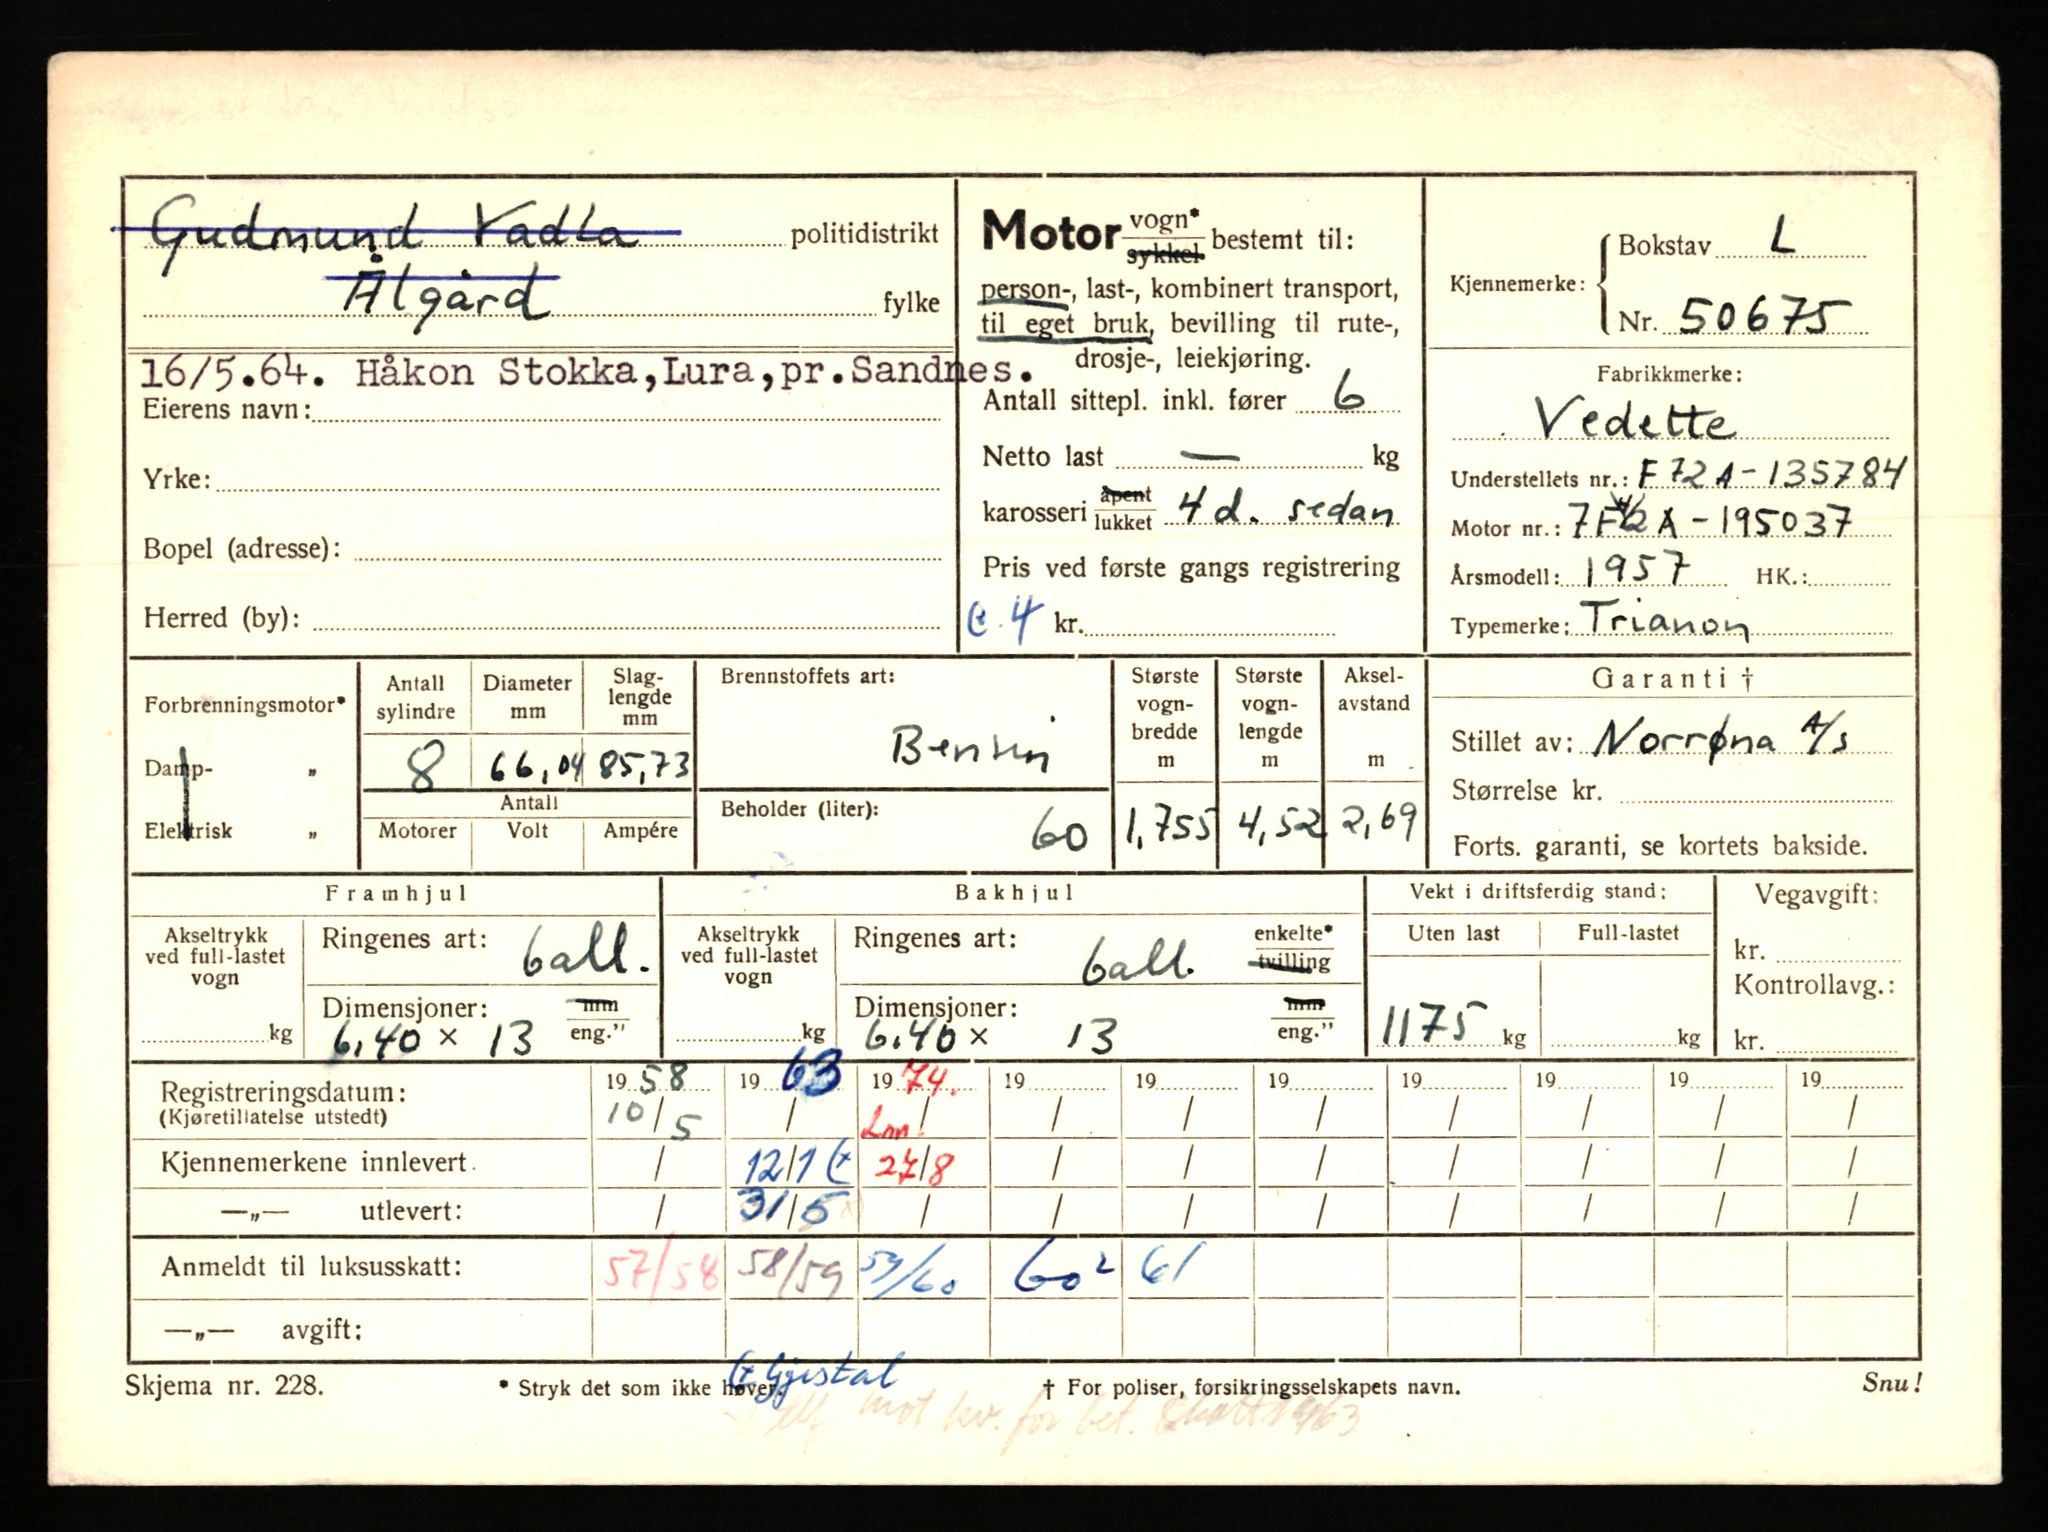 Gudmund Vadla politidistrikt
Ålgård fylke
16/5.64. Håkon Stokka, Lura, pr. Sandnes.
Eierens navn:
Yrke:
Bopel (adresse):
Herred (by):
Motor vogn* sykkel bestemt til:
person-, last-, kombinert transport,
til eget bruk, bevilling til rute-,
drosje-, leiekjøring.
Antall sittepl. inkl. fører 6
Netto last — kg
karosseri åpent lukket 4 d. sedan
Pris ved første gangs registrering
4 kr.
Kjennemerke: Bokstav L
Nr. 50675
Fabrikkmerke:
Vedette
Understellets nr.: F72A-135784
Motor nr.: 7F 2A-195037
Årsmodell: 1957 HK.:
Typemerke: Trianon
Forbrenningsmotor*
Damp- „
Elektrisk „
Antall sylindre
Diameter mm
Slag-lengde mm
8 66,04 85,73
Antall
Motorer Volt Ampére
Brennstoffets art:
Bensin
Beholder (liter):
60
Største vogn-bredde m
Største vogn-lengde m
Aksel-avstand m
1,755 4,52 2,69
Garanti †
Stillet av: Norrøna A/s
Størrelse kr.
Forts. garanti, se kortets bakside.
Framhjul
Akseltrykk ved full-lastet vogn
kg
Ringenes art: ball.
Dimensjoner: mm
6.40 × 13 eng."
Bakhjul
Akseltrykk ved full-lastet vogn
kg
Ringenes art: ball. enkelte* tvilling
Dimensjoner: mm
6.40 × 13 eng."
Vekt i driftsferdig stand:
Uten last Full-lastet
1175 kg kg
Vegavgift:
kr.
Kontrollavg.:
kr.
Registreringsdatum: 19 58 19 63 19 74. 19 19 19 19 19 19 19
(Kjøretillatelse utstedt) 10/5 / / / / / / / / /
Kjennemerkene innlevert. / 12/1 27/8 / / / / / / /
—„— utlevert: / 31/5 / / / / / / / /
Anmeldt til luksusskatt: 57/58 58/59 59/60 60² 61
—„— avgift:
Gjestal
Skjema nr. 228. * Stryk det som ikke høver. † For poliser, forsikringsselskapets navn. Snu!
mot kv. for bet. skatt 1963